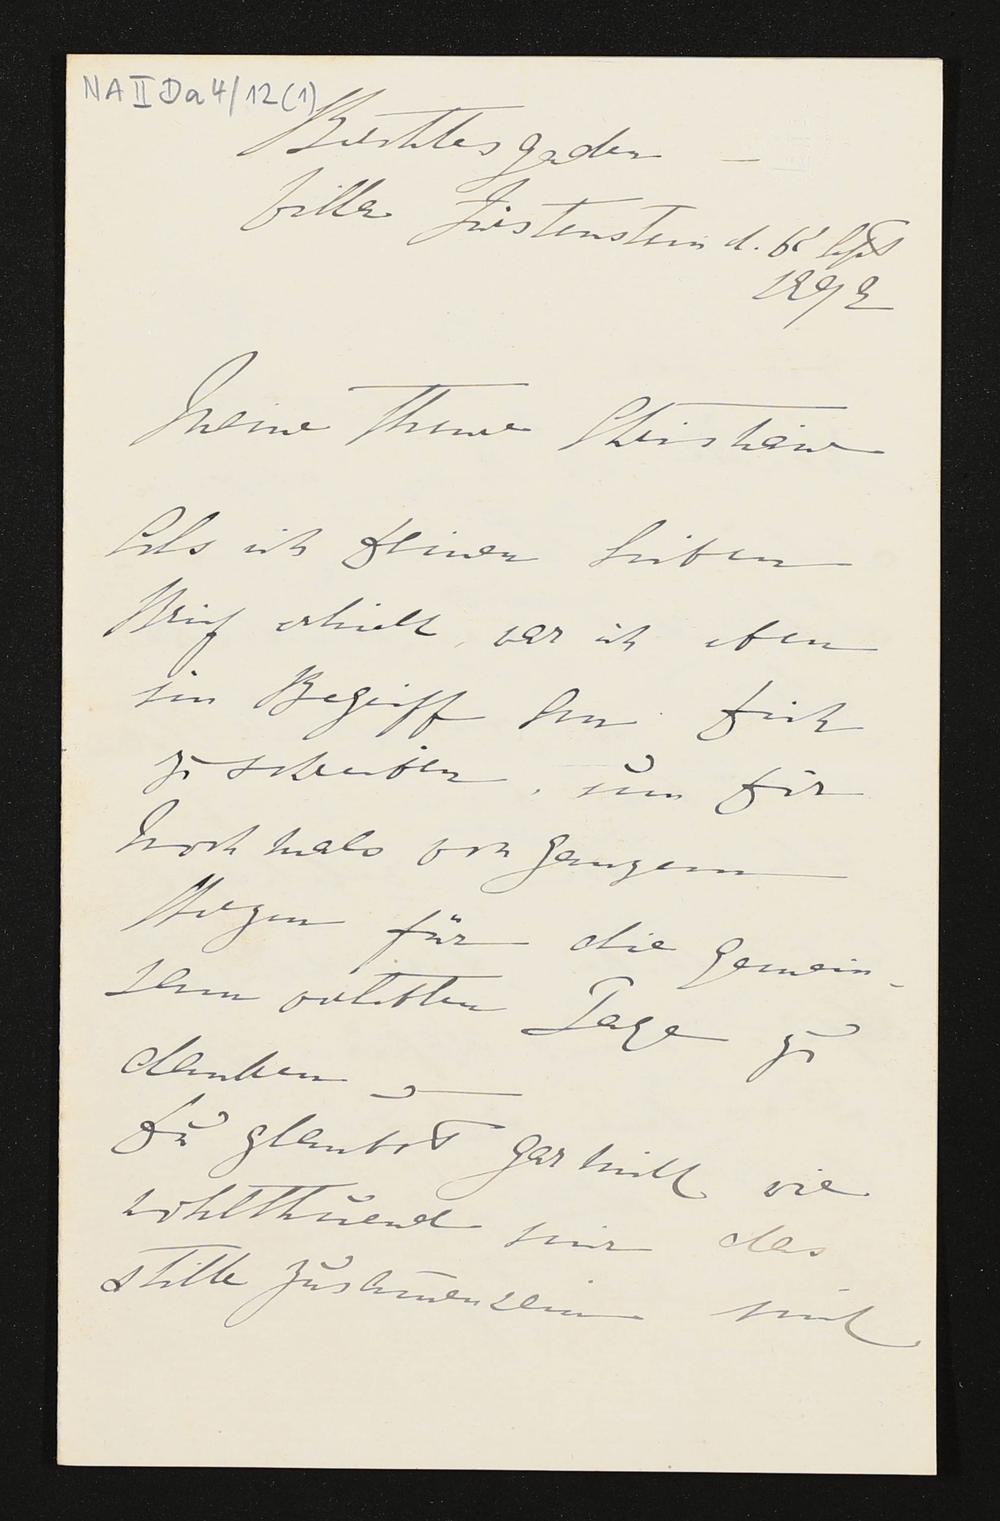 NA II Da 4/12(1)
Berchtesgaden –
Villa Fürstenstein d. 6t Sept
1892
Meine Theure Christiane
Als ich Deinen lieben
Brief erhielt, war ich eben
im Begriff an Dich
zu schreiben, um Dir
nochmals von ganzem
Herzen für die gemein-
sam verlebten Tage zu
danken –
Du glaubst gar nicht wie
wohlthuend mir das
stille Zusam̄ensein mit